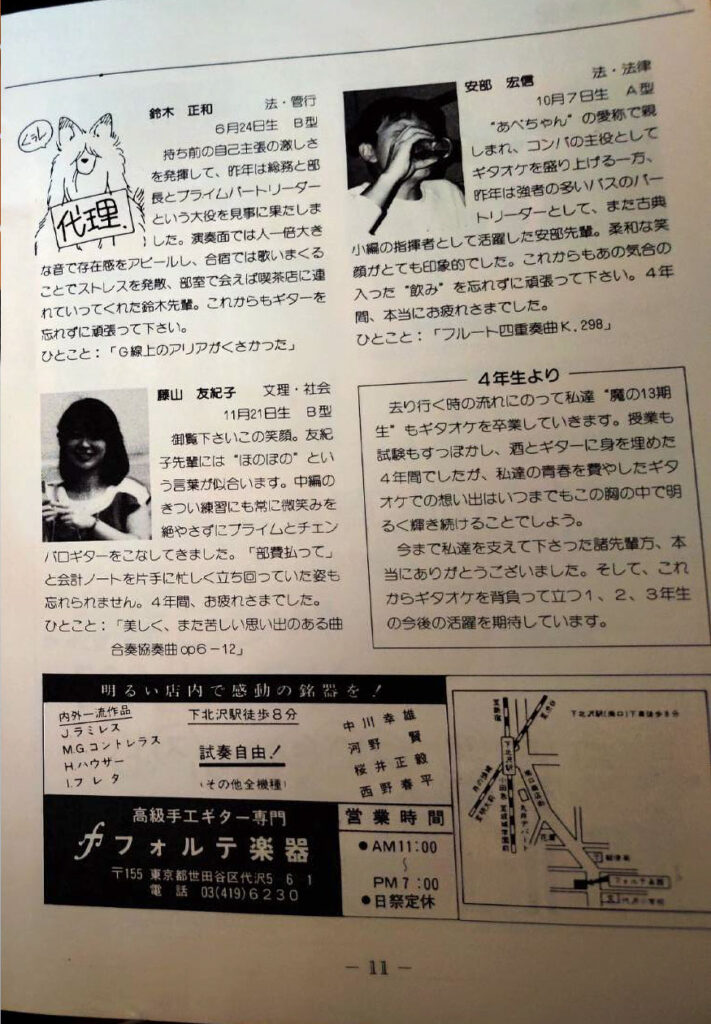 鈴木 正和 法・管行
6月24日生 B型
持ち前の自己主張の激しさ
を発揮して、昨年は総務と部
長とプライムパートリーダー
という大役を見事に果たしま
した。演奏面では人一倍大き
な音で存在感をアピールし、合宿では歌いまくる
ことでストレスを発散、部室で会えば喫茶店に連
れていってくれた鈴木先輩。これからもギターを
忘れずに頑張って下さい。
ひとこと:「G線上のアリアがくさかった」
代理.
安部 宏信 法・法律
10月7日生 A型
“あべちゃん”の愛称で親
しまれ、コンパの主役として
ギタオケを盛り上げる一方、
昨年は強者の多いバスのパー
トリーダーとして、また古典
小編の指揮者として活躍した安部先輩。柔和な笑
顔がとても印象的でした。これからもあの気合の
入った“飲み”を忘れずに頑張って下さい。4年
間、本当にお疲れさまでした。
ひとこと:「フルート四重奏曲K.298」
藤山 友紀子 文理・社会
11月21日生 B型
御覧下さいこの笑顔。友紀
子先輩には“ほのぼの”とい
う言葉が似合います。中編の
きつい練習にも常に微笑みを
絶やさずにプライムとチェン
バロギターをこなしてきました。「部費払って」
と会計ノートを片手に忙しく立ち回っていた姿も
忘れられません。4年間、お疲れさまでした。
ひとこと:「美しく、また苦しい思い出のある曲
合奏協奏曲op6-12」
4年生より
去り行く時の流れにのって私達“魔の13期
生”もギタオケを卒業していきます。授業も
試験もすっぽかし、酒とギターに身を埋めた
4年間でしたが、私達の青春を費やしたギタ
オケでの想い出はいつまでもこの胸の中で明
るく輝き続けることでしょう。
今まで私達を支えて下さった諸先輩方、本
当にありがとうございました。そして、これ
からギタオケを背負って立つ1、2、3年生
の今後の活躍を期待しています。
明るい店内で感動の銘器を!
内外一流作品
J.ラミレス
M.G.コントレラス
H.ハウザー
I.フレタ
下北沢駅徒歩8分
試奏自由!
(その他全機種)
中川幸雄
河野 賢
桜井正毅
西野春平
高級手工ギター専門
フォルテ楽器
〒155 東京都世田谷区代沢5 6 1
電話 03(419)6230
営業時間
●AM11:00
〜
PM7:00
●日祭定休
下北沢駅(南口)下車徒歩8分
下北沢駅
フォルテ楽器
— 11 —